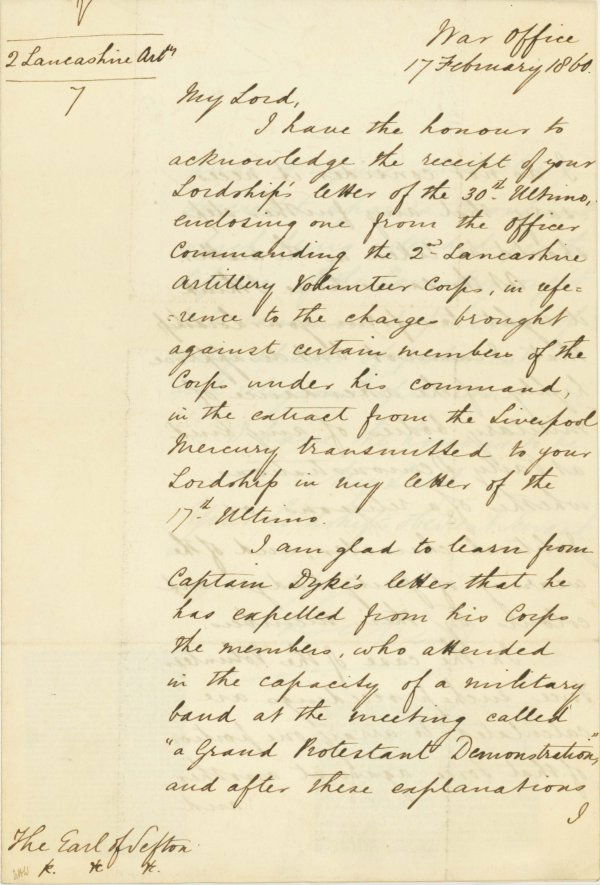 War Office
17 February 1860.
2 Lancashire Arty
7
My Lord,
I have the honour to
acknowledge the receipt of your
Lordship's letter of the 30th Ultimo,
enclosing one from the Officer
Commanding the 2nd Lancashire
Artillery Volunteer Corps, in refe=
=rence to the charges brought
against certain members of the
Corps under his command,
in the extract from the Liverpool
Mercury transmitted to your
Lordship in my letter of the
17th Ultimo.
I am glad to learn from
Captain Dyke's letter that he
has expelled from his Corps
the members, who attended
in the capacity of a military
band at the meeting called
"a Grand Protestant Demonstration,"
and after these explanations
I
The Earl of Sefton